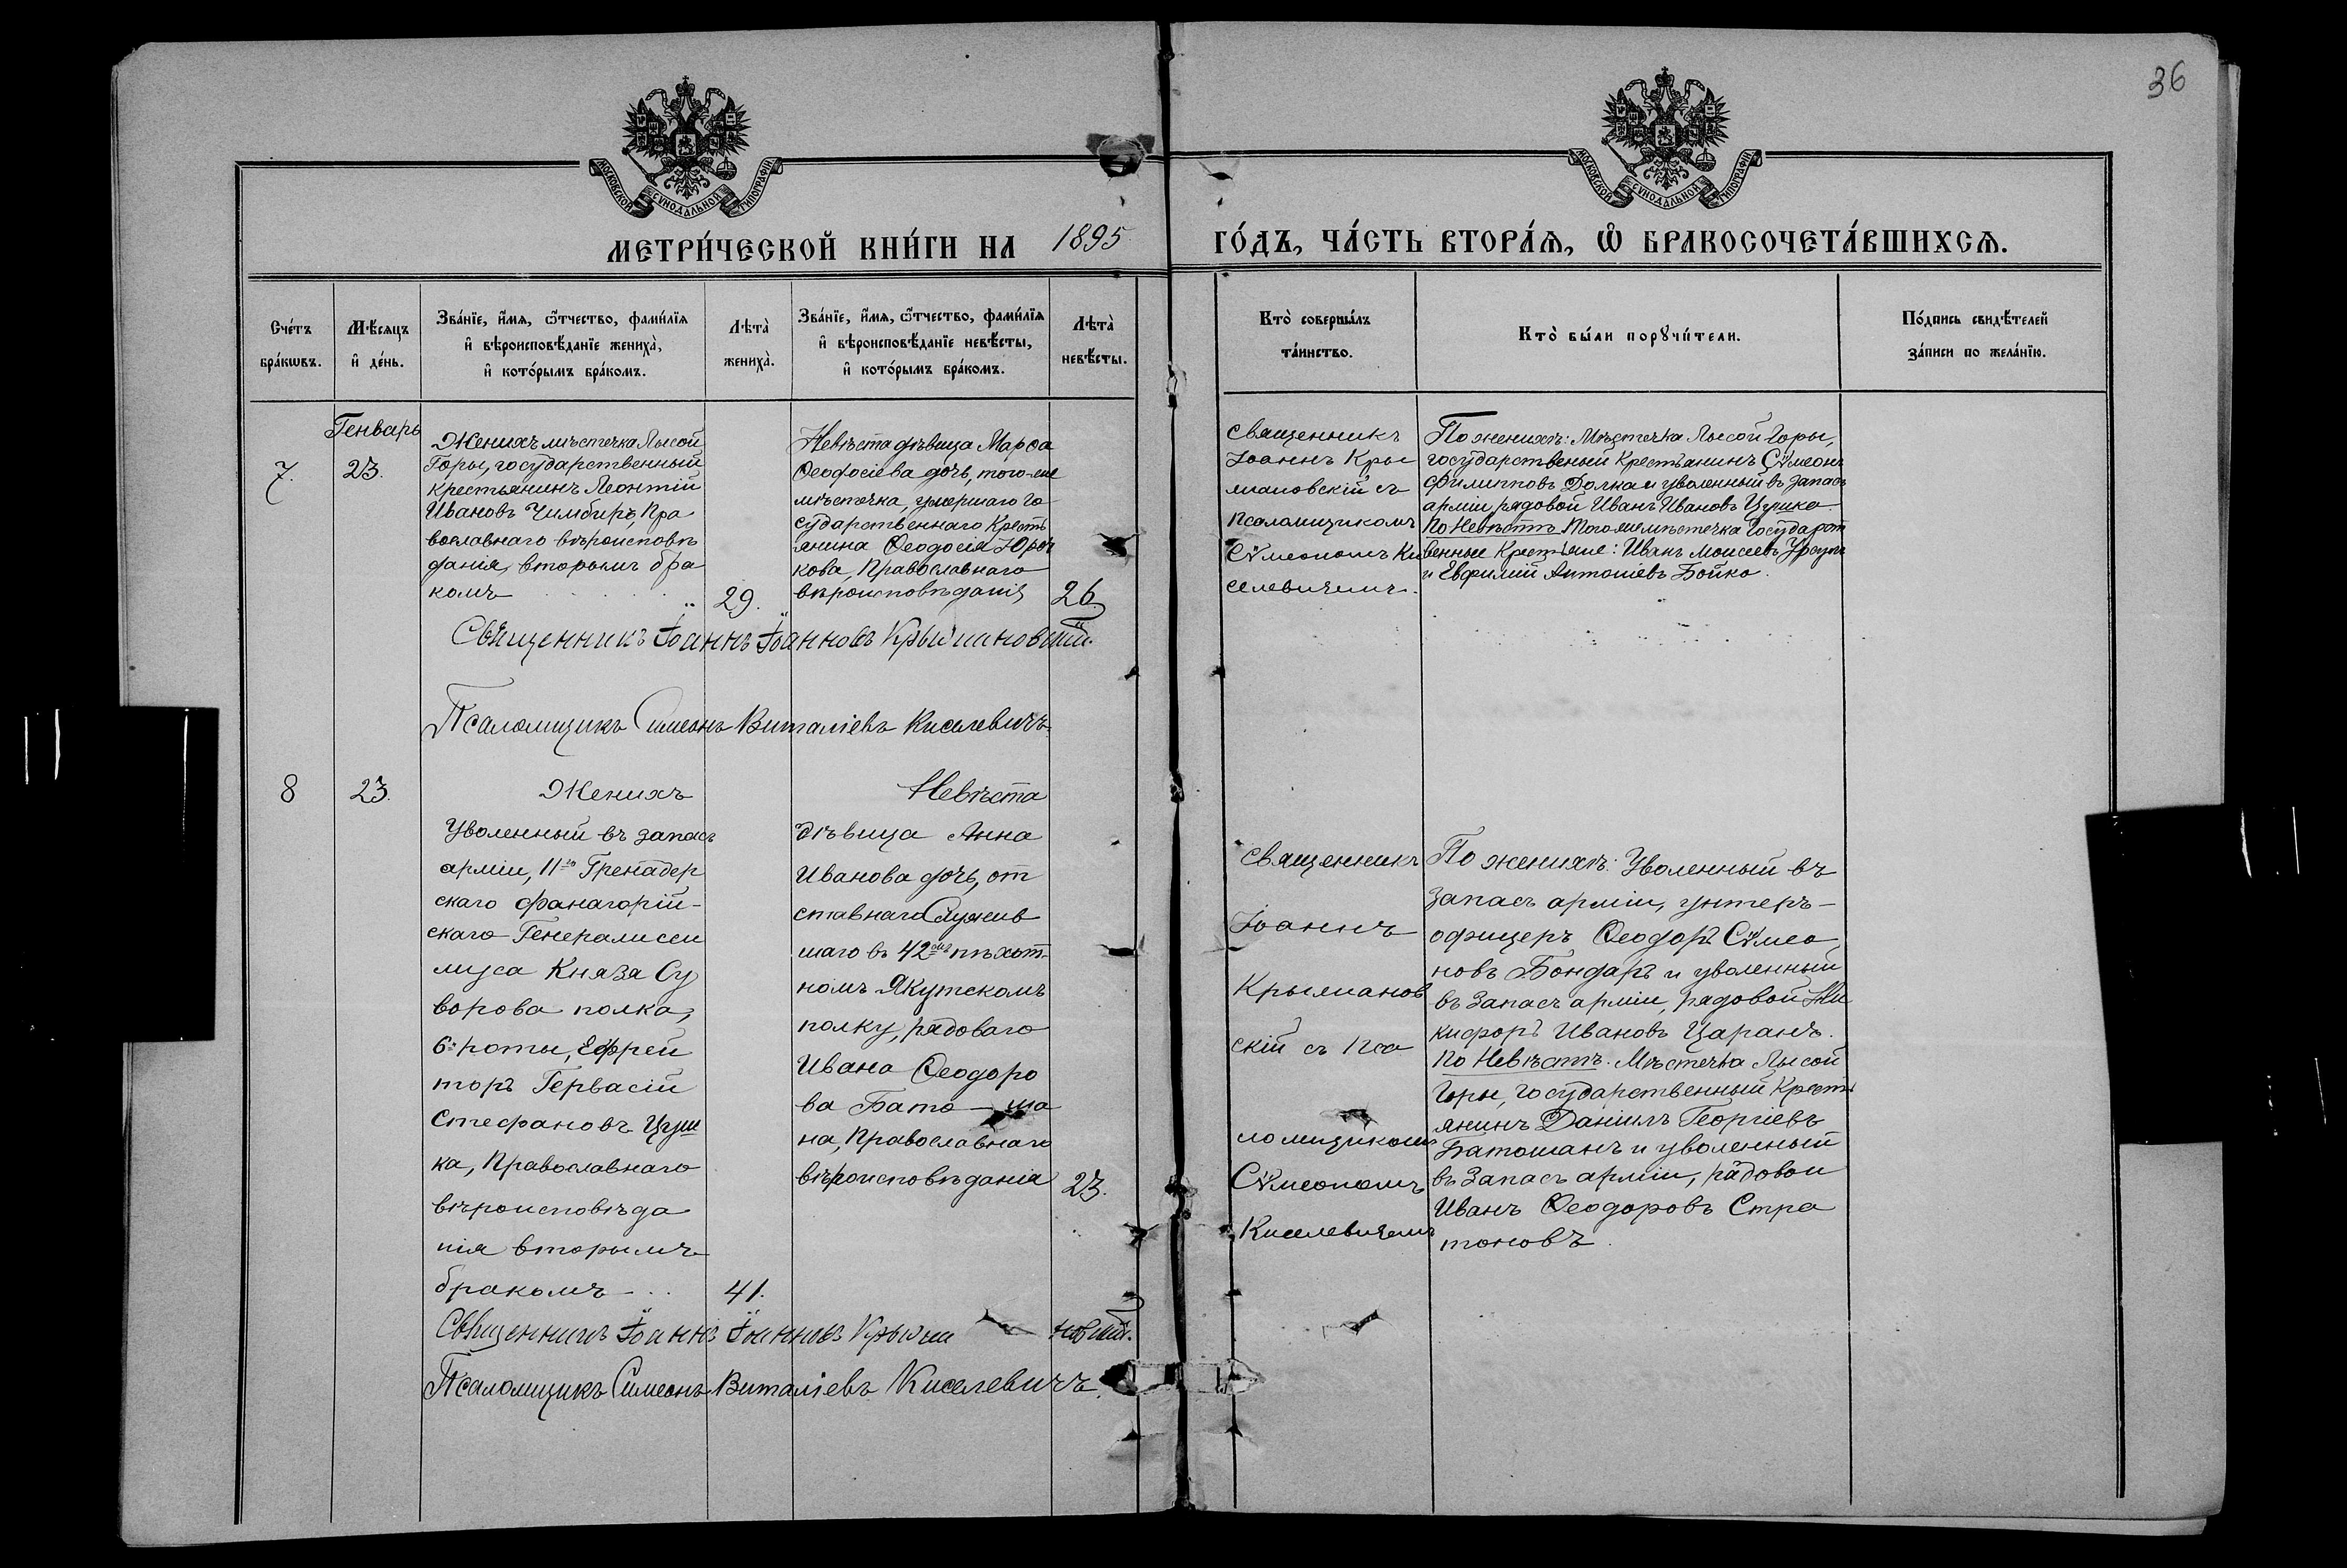 36
МОСКОВСКОЙ СѴНОДАЛЬНОЙ ТИПОГРАФІИ
МОСКОВСКОЙ СѴНОДАЛЬНОЙ ТИПОГРАФІИ
МЕТРИ́ЧЕСКОЙ КНИ́ГИ НА 1895 ГО́ДЪ, ЧА́СТЬ ВТОРА́Ѧ, Ѽ БРАКОСОЧЕТА́ВШИХСѦ.
Сче́тъ
бра́кѡвъ.
Мѣ́сѧцъ
и҆ де́нь.
Зва́нїе, и҆́мѧ, ѻ҆́тчество, фами́лїѧ
и҆ вѣроисповѣ́данїе жениха̀,
и҆ кото́рымъ бра́комъ.
Лѣта̀
жениха̀.
Зва́нїе, и҆́мѧ, ѻ҆́тчество, фами́лїѧ
и҆ вѣроисповѣ́данїе невѣ́сты,
и҆ кото́рымъ бра́комъ.
Лѣта̀
невѣ́сты.
Кто̀ соверши́лъ
та́инство.
Кто̀ бы́ли порꙋчи́тели.
По́дпись свидѣ́телей
за́писи по жела́нїю.
Генварь
7.
23.
Женихъ мѣстечка Лысой
Горы, государственный
крестьянинъ Леонтій
Ивановъ Чимбиръ, Пра
вославнаго вѣроисповѣ
данія, вторымъ бра
комъ
29.
Невѣста дѣвица Марѳа
Ѳеодосіева дочь, того-же
мѣстечка, умершаго Го
сударственнаго Кресть
янина Ѳеодосія Юрч
кова, Православнаго
вѣроисповѣданія
26
Священникъ
Іоаннъ Кры
жановскій съ
псаломщикомъ
Сѵмеономъ Ки
селевичемъ.
По женихѣ: Мѣстечка Лысой Горы,
государственый Крестьянинъ Сѵмеонъ
Филипповъ Долка и уволенный въ запасъ
арміи рядовой Иванъ Ивановъ Цушка
По Невѣстѣ Того же мѣстечка Государст
венные Крестьяне: Иванъ Моисеевъ
и Евфимій Антоніевъ Бойко.
Священникъ Іоаннъ Іоанновъ Крыжановскій.
Псаломщикъ Симеонъ Виталіевъ Киселевичъ
8
23.
Женихъ
Уволенный въ запасъ
арміи, 11го Гренадер
скаго Фанагорій-
скаго Генералисси
муса Князя Су
ворова полка,
6й роты, Ефрей
торъ Гервасій
Стефановъ Цуш
ка, Православнаго
вѣроисповѣда
нія вторымъ
бракомъ
41.
Невѣста
дѣвица Анна
Иванова дочь, от
ставнаго Служив
шаго въ 42мъ пѣхот-
номъ Якутскомъ
полку, рядоваго
Ивана Ѳеодоро
ва Бато-ша
на, Православнаго
вѣроисповѣданія
23.
Священникъ
Іоаннъ
Крыжанов
скій съ Пса
ломщикомъ
Сѵмеономъ
Киселевичемъ
По женихѣ: Уволенный въ
запасъ арміи, унтеръ-
офицеръ Ѳеодоръ Сѵмео
новъ Бондарь и уволенный
въ запасъ арміи, рядовой Ни
кифоръ Ивановъ Царанъ.
По Невѣстѣ. Мѣстечка Лысой
Горы, Государственный Кресть
янинъ Даніилъ Георгіевъ
Батошанъ и уволенный
въ запасъ арміи, рядовой
Иванъ Ѳеодоровъ Стра
тоновъ.
Священникъ Іоаннъ Іоанновъ Крыжановскій.
Псаломщикъ Симеонъ Виталіевъ Киселевичъ.